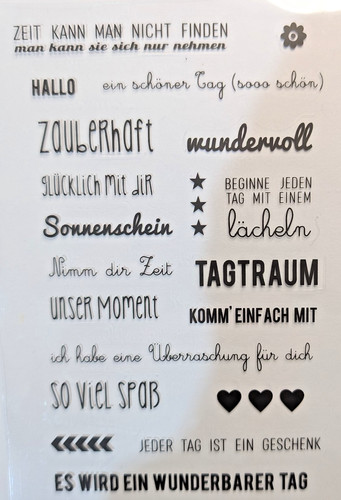 ZEIT KANN MAN NICHT FINDEN
man kann sie sich nur nehmen
HALLO
ein schöner Tag (sooo schön)
zauberhaft
wundervoll
glücklich mit dir
BEGINNE JEDEN
TAG MIT EINEM
lächeln
Sonnenschein
Nimm dir Zeit
TAGTRAUM
unser Moment
KOMM' EINFACH MIT
ich habe eine Überraschung für dich
so viel Spaß
JEDER TAG IST EIN GESCHENK
ES WIRD EIN WUNDERBARER TAG